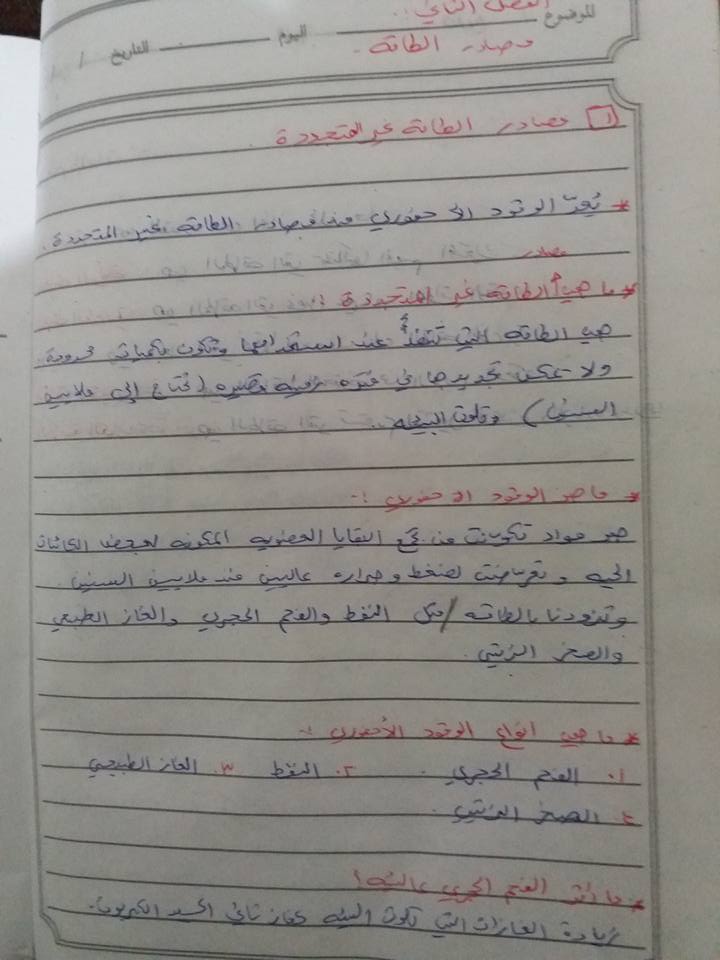 الفصل الثاني :.
للموضوع اليوم التاريخ / /
مصادر الطاقة .
1 مصادر الطاقة غير المتجددة
* يُعدّ الوقود الاحفوري من مصادر الطاقة غير المتجددة .
مصادر
* ما هي الطاقة غير المتجددة :
هي الطاقه التي تنفذ عند استخدامها وتكون بكميات محدودة
ولا يمكن تجديدها في فتره زمنيه قصيره (تحتاج إلى ملايين
السنين) وتلوث البيئه ..
* ما هو الوقود الاحفوري :-
هو مواد تكونت من تجمع البقايا العضويه المكونه لبعض الكائنات
الحيه وتعرضت لضغط وحراره عاليين منذ ملايين السنين
وتزودنا بالطاقه / مثل النفط والفحم الحجري والغاز الطبيعي
والصخر الزيتي .
* ما هي انواع الوقود الأحفوري :-
١. الفحم الحجري . ٢. النفط ٣. الغاز الطبيعي
٤ الصخر الزيتي .
* ما اثر الفحم الحجري على البيئه !
زيادة الغازات التي تلوث البيئه كغاز ثاني اكسيد الكربون .